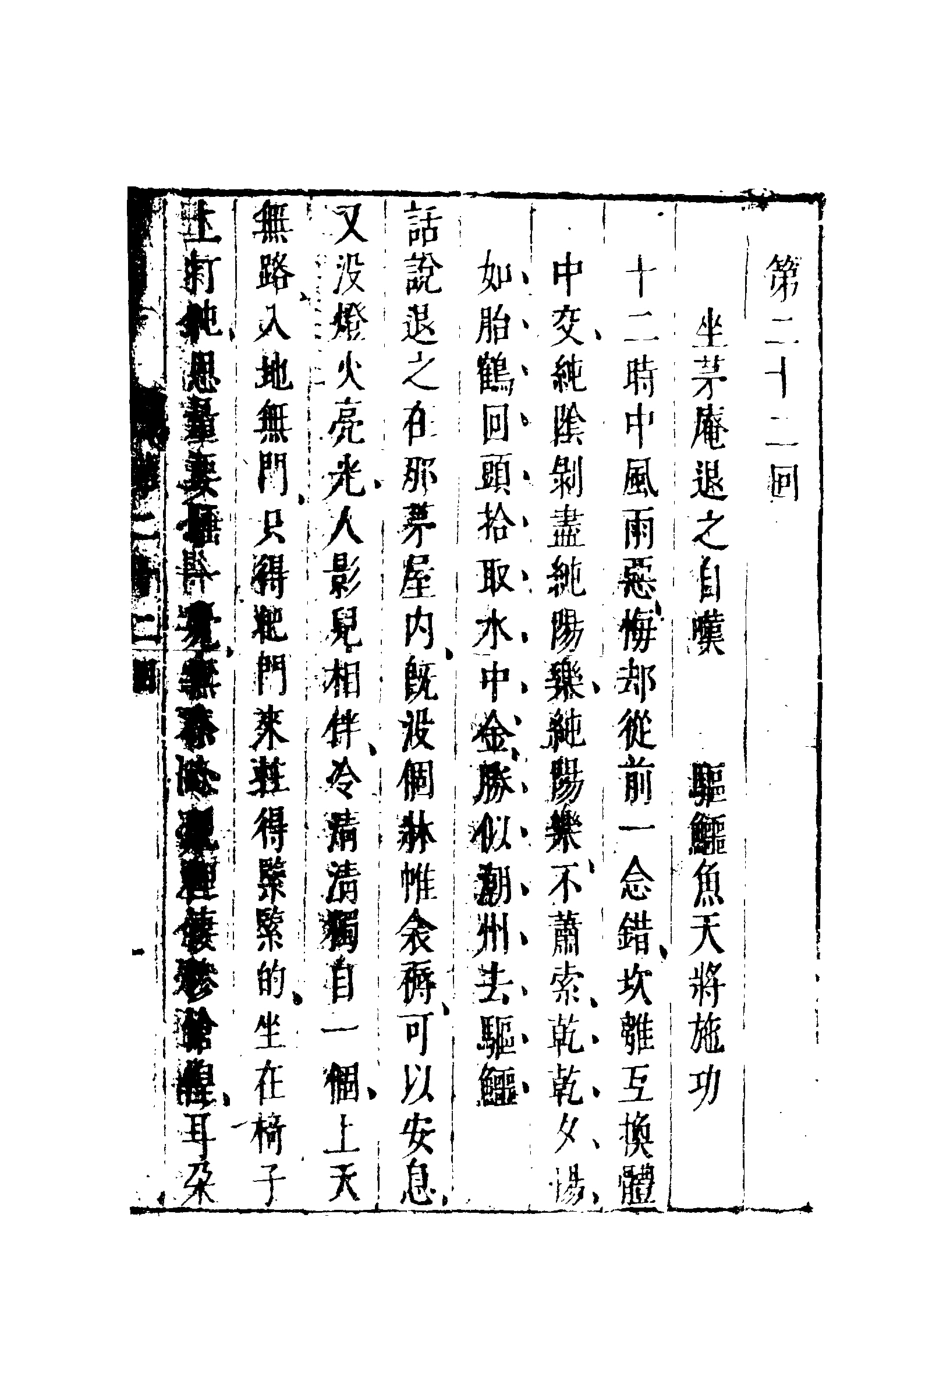 第二十二回
坐茅庵退之自嘆　驅鱷魚天將施功
十二時中風雨惡、悔却從前一念錯、坎離互換體
中交、純陰剝盡純陽樂、純陽樂、不蕭索、乾乾夕惕、
如胎鶴、回頭拾取水中金、勝似潮州去驅鱷、
話說退之在那茅屋内、旣没個牀帷衾褥、可以安息、
又没燈火亮光、人影兒相伴、冷清清獨自一個、上天
無路、入地無門、只得把門來輊得緊緊的、坐在椅子
上打盹、思量要睡一覺、無奈心裡悽慘、耳朶
第二十二回